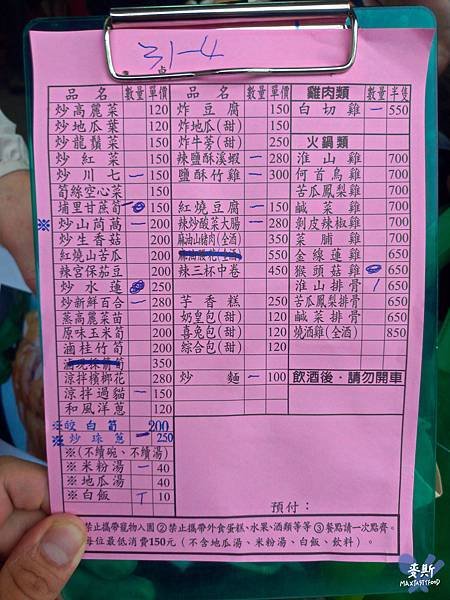 31-4
桌
品名 數量 單價
炒高麗菜 120
炒地瓜葉 120
炒龍鬚菜 150
炒紅菜 150
炒川七 一 150
筍絲空心菜 150
埔里甘蔗筍 150
※炒山茼萵 一 200
炒生香菇 200
紅燒山苦瓜 200
辣宮保茄豆 200
炒水蓮 250
炒新鮮百合 一 280
蒸高麗菜苗 200
原味玉米筍 200
滷桂竹筍 200
350
涼拌檳榔花 280
涼拌過貓 一 150
和風洋蔥 120
※皎白筍 200
※炒珠蔥 一 250
※(不續碗、不續湯)
※米粉湯 一 40
※地瓜湯 40
※白飯 T 10
品名 數量 單價
炸豆腐 150
炸地瓜(甜) 150
炸牛蒡(甜) 250
辣鹽酥溪蝦 一 280
鹽酥竹雞 一 300
紅燒豆腐 一 150
辣炒酸菜大腸 一 280
麻油山豬肉(全酒) 350
550
辣三杯中卷 450
芋香糕 250
奶皇包(甜) 120
喜兔包(甜) 120
綜合包(甜) 120
炒麵 一 100
雞肉類 數量 半隻
白切雞 一 550
火鍋類
淮山雞 700
何首烏雞 700
苦瓜鳳梨雞 700
鹹菜雞 700
剝皮辣椒雞 700
菜脯雞 700
金線蓮雞 650
猴頭菇雞 650
淮山排骨 650
苦瓜鳳梨排骨 650
鹹菜排骨 650
燒酒雞(全酒) 850
飲酒後‧請勿開車
預付：
禁止攜帶寵物入園②禁止攜帶外食蛋糕、水果、酒類等等③餐點請一次點齊。
每位最低消費150元（不含地瓜湯、米粉湯、白飯、飲料）。
麥斯
MAXTASTYFOOD